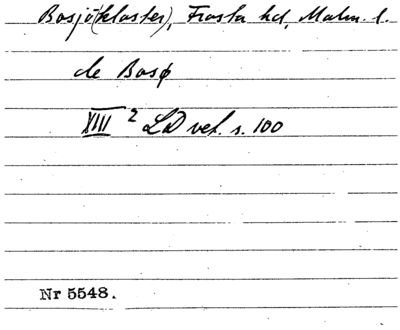 Bosjö(kloster), Frosta hd, Malm. l.
de Bosø
XIII 2 LD vet. s. 100
Nr 5548.